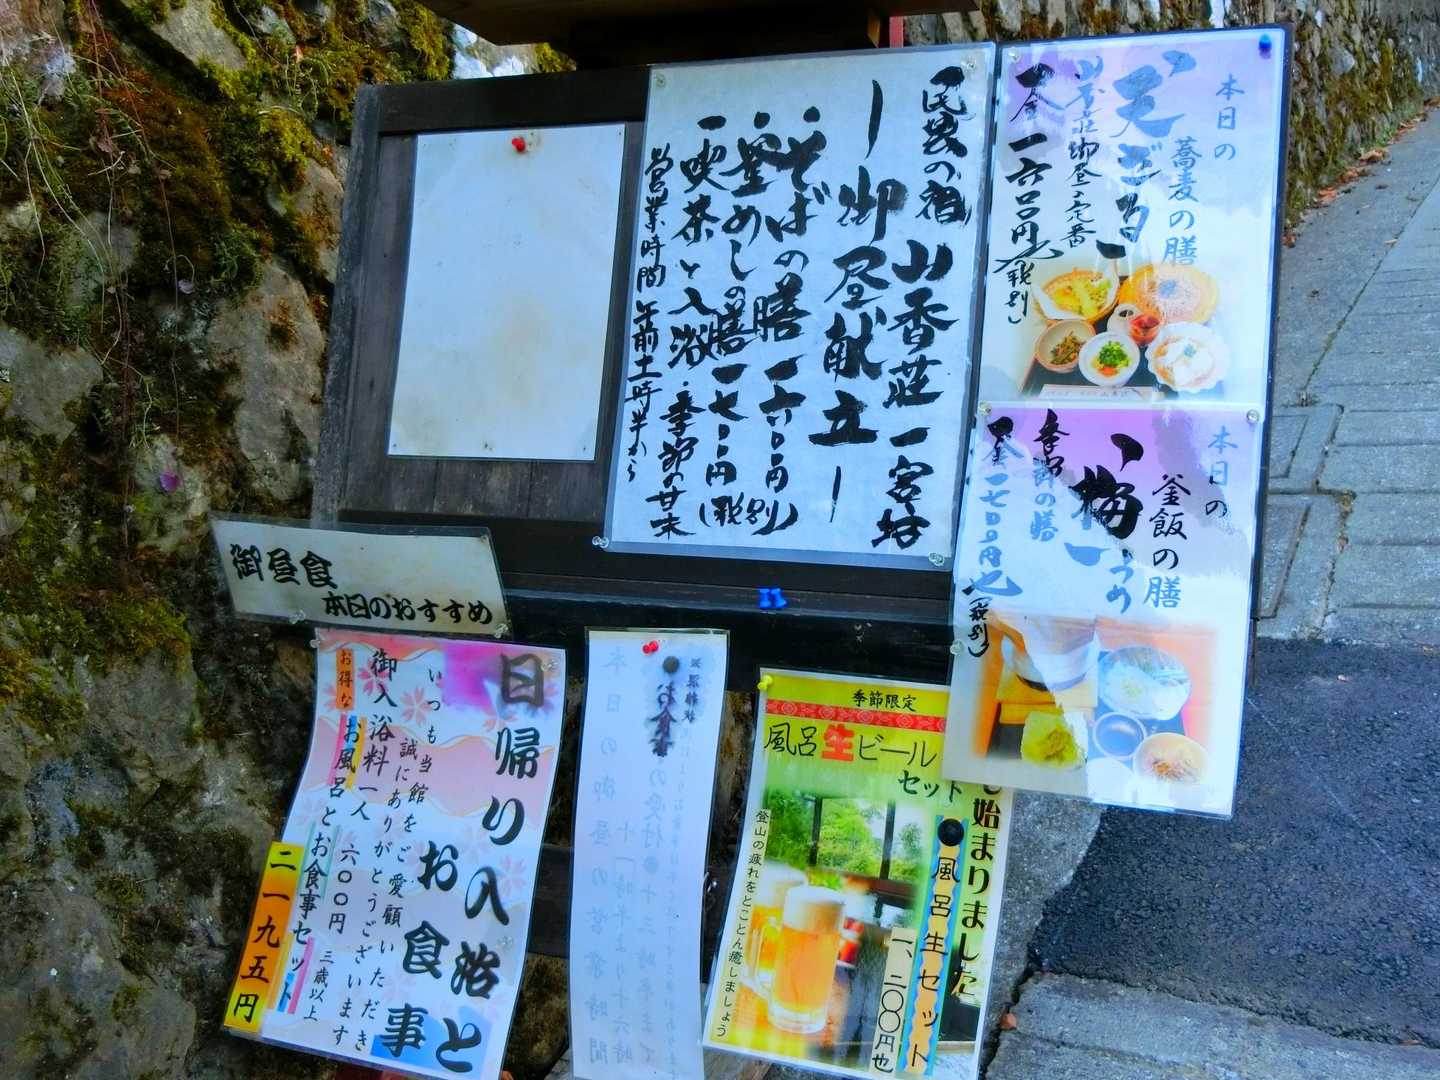 民芸の宿
山香荘
一宮坊
ー御昼献立ー
・そばの膳 一六〇〇円
・釜めしの膳 一七〇〇円(税別)
一喫茶と入浴・季節の甘味
営業時間 午前十一時半から
本日の
蕎麦の膳
天ざる
山香荘御昼の定番
一金 一六〇〇円也
(税別)
本日の
釜飯の膳
「梅」うめ
季節の膳
一金 一七〇〇円也
(税別)
御昼食
本日のおすすめ
日帰り入浴と
お食事
いつも当館をご愛顧いただき
誠にありがとうございます
御入浴料一人 六〇〇円 三歳以上
お得な
お風呂とお食事セット
二一九五円
●お食事の受付●十三時半まで
本日の御昼の営業時間
十一時半より十六時
季節限定
風呂生ビール
セット
始まりました
●風呂生セット
一、二〇〇円也
登山の疲れをとことん癒しましょう